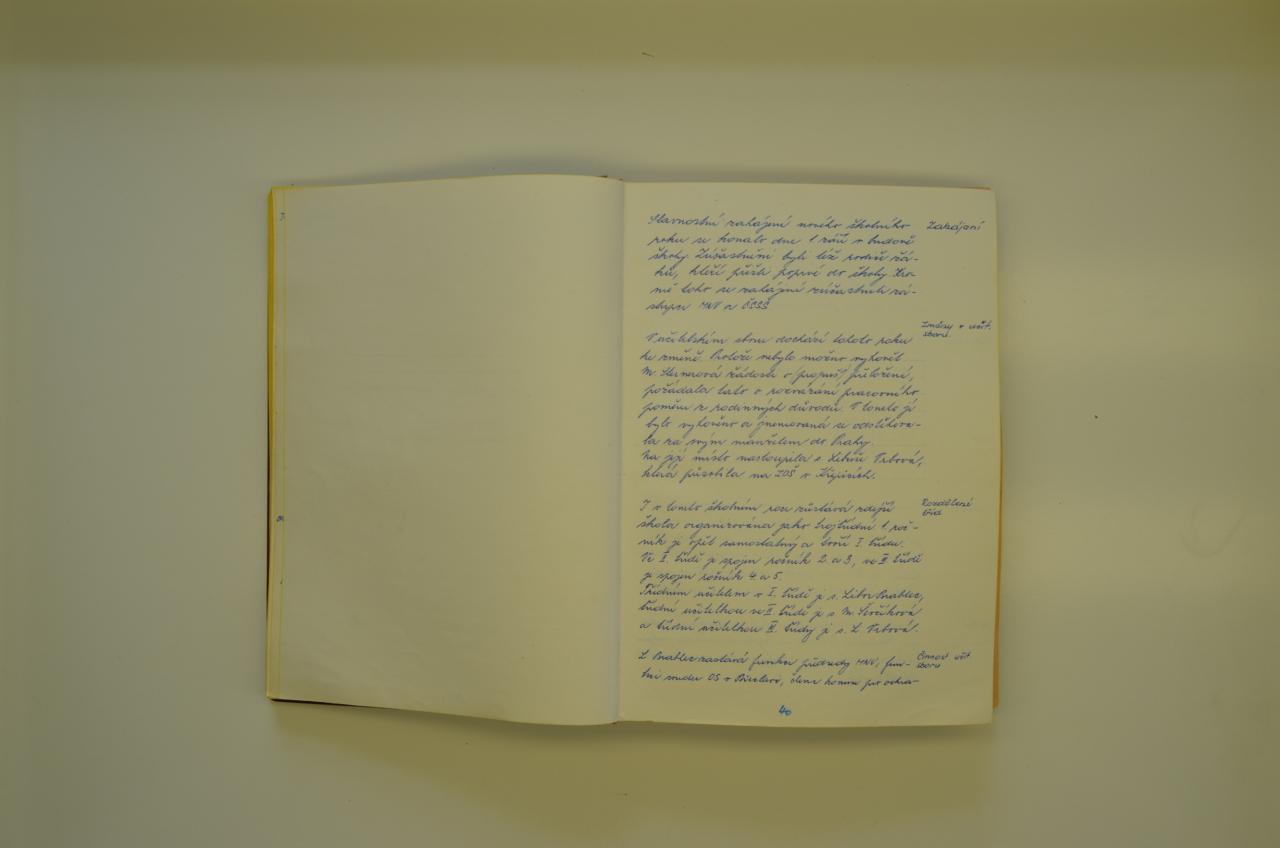 Slavnostní zahájení nového školního
roku se konalo dne 1. září v budově
školy. Zúčastněni byli též rodiče žá-
ků, kteří přišli poprvé do školy. Kro-
mě toho se zahájení zúčastnili zá-
stupci MNV a ČSSŠ
Zahájení
V učitelském sboru dochází tohoto roku
ke změně. Protože nebylo možno vyhovět
M. žádosti o /propuš/ přeložení,
požádala tato o rozvázání pracovního
poměru z rodinných důvodu. V tomto jí
bylo vyhověno a jmenovaná se odstěhova-
la za svým manželem do Prahy.
Na její místo nastoupila s. Libuše Vrbová,
která působila na ZDŠ v
Změny v učit.
sboru.
I v tomto školním roce zůstává zdejší
škola organizována jako trojtřídní. 1. roč-
ník je opět samostatný a tvoří I. třídu.
Ve II. třídě je spojen ročník 2. a 3., ve III. třídě
je spojen ročník 4. a 5.
Třídním učitelem v I. třídě je s. Libor
třídní učitelkou ve II. třídě je s. M.
a třídní učitelkou III. třídy je s. L. Vrbová.
Rozdělení
tříd
L. zastává funkci předsedy MNV, funk-
ci soudce OS v Břeclavi, člena komise pro ochra-
Činnost učit.
sboru
40